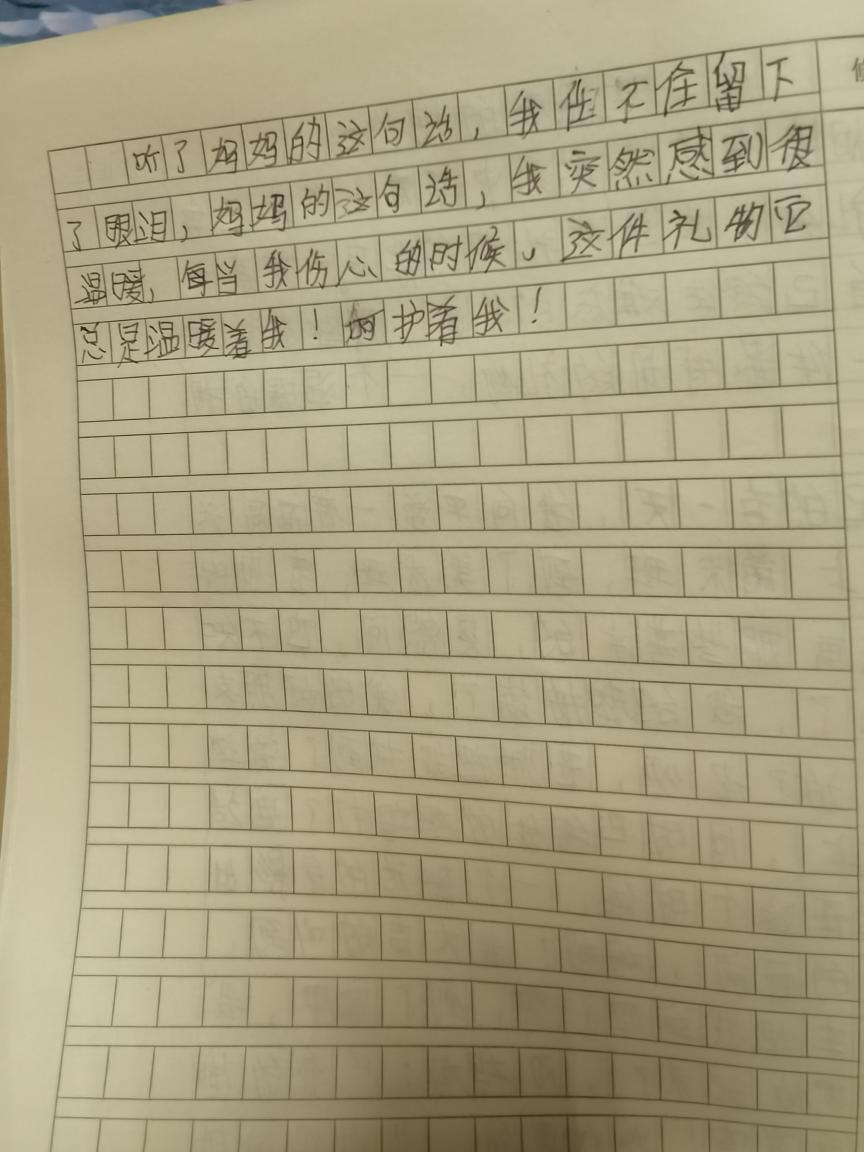 听了妈妈的这句话，我住不住留下
了眼泪，妈妈的这句话，我突然感到很
温暖，每当我伤心的时候。这件礼物它
总是温暖着我！呵护着我！